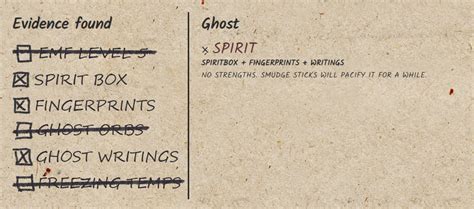 Evidence found
EMF LEVEL 5
SPIRIT BOX
FINGERPRINTS
GHOST ORBS
GHOST WRITINGS
FREEZING TEMPS
Ghost
x SPIRIT
SPIRITBOX + FINGERPRINTS + WRITINGS
NO STRENGTHS. SMUDGE STICKS WILL PACIFY IT FOR A WHILE.